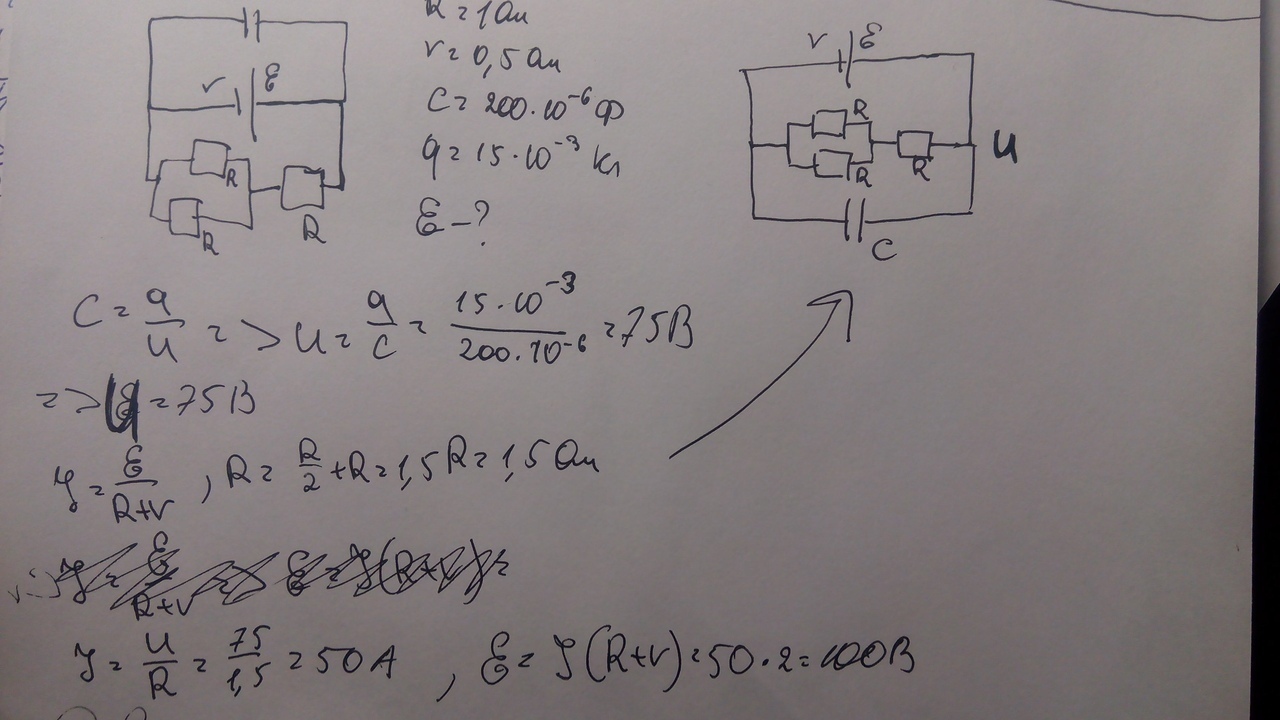 R = 1 Ом
r = 0,5 Ом
C = 200·10⁻⁶ Ф
q = 15·10⁻³ Кл
ℰ - ?
r ℰ
R
R
R
r ℰ
R
R
R
U
C
C = q/U => U = q/C = 15·10⁻³/200·10⁻⁶ = 75 В
=> U = 75 В
J = ℰ/R+r , R = R/2 + R = 1,5 R = 1,5 Ом
J = U/R = 75/1,5 = 50 А , ℰ = J(R+r) = 50·2 = 100 В